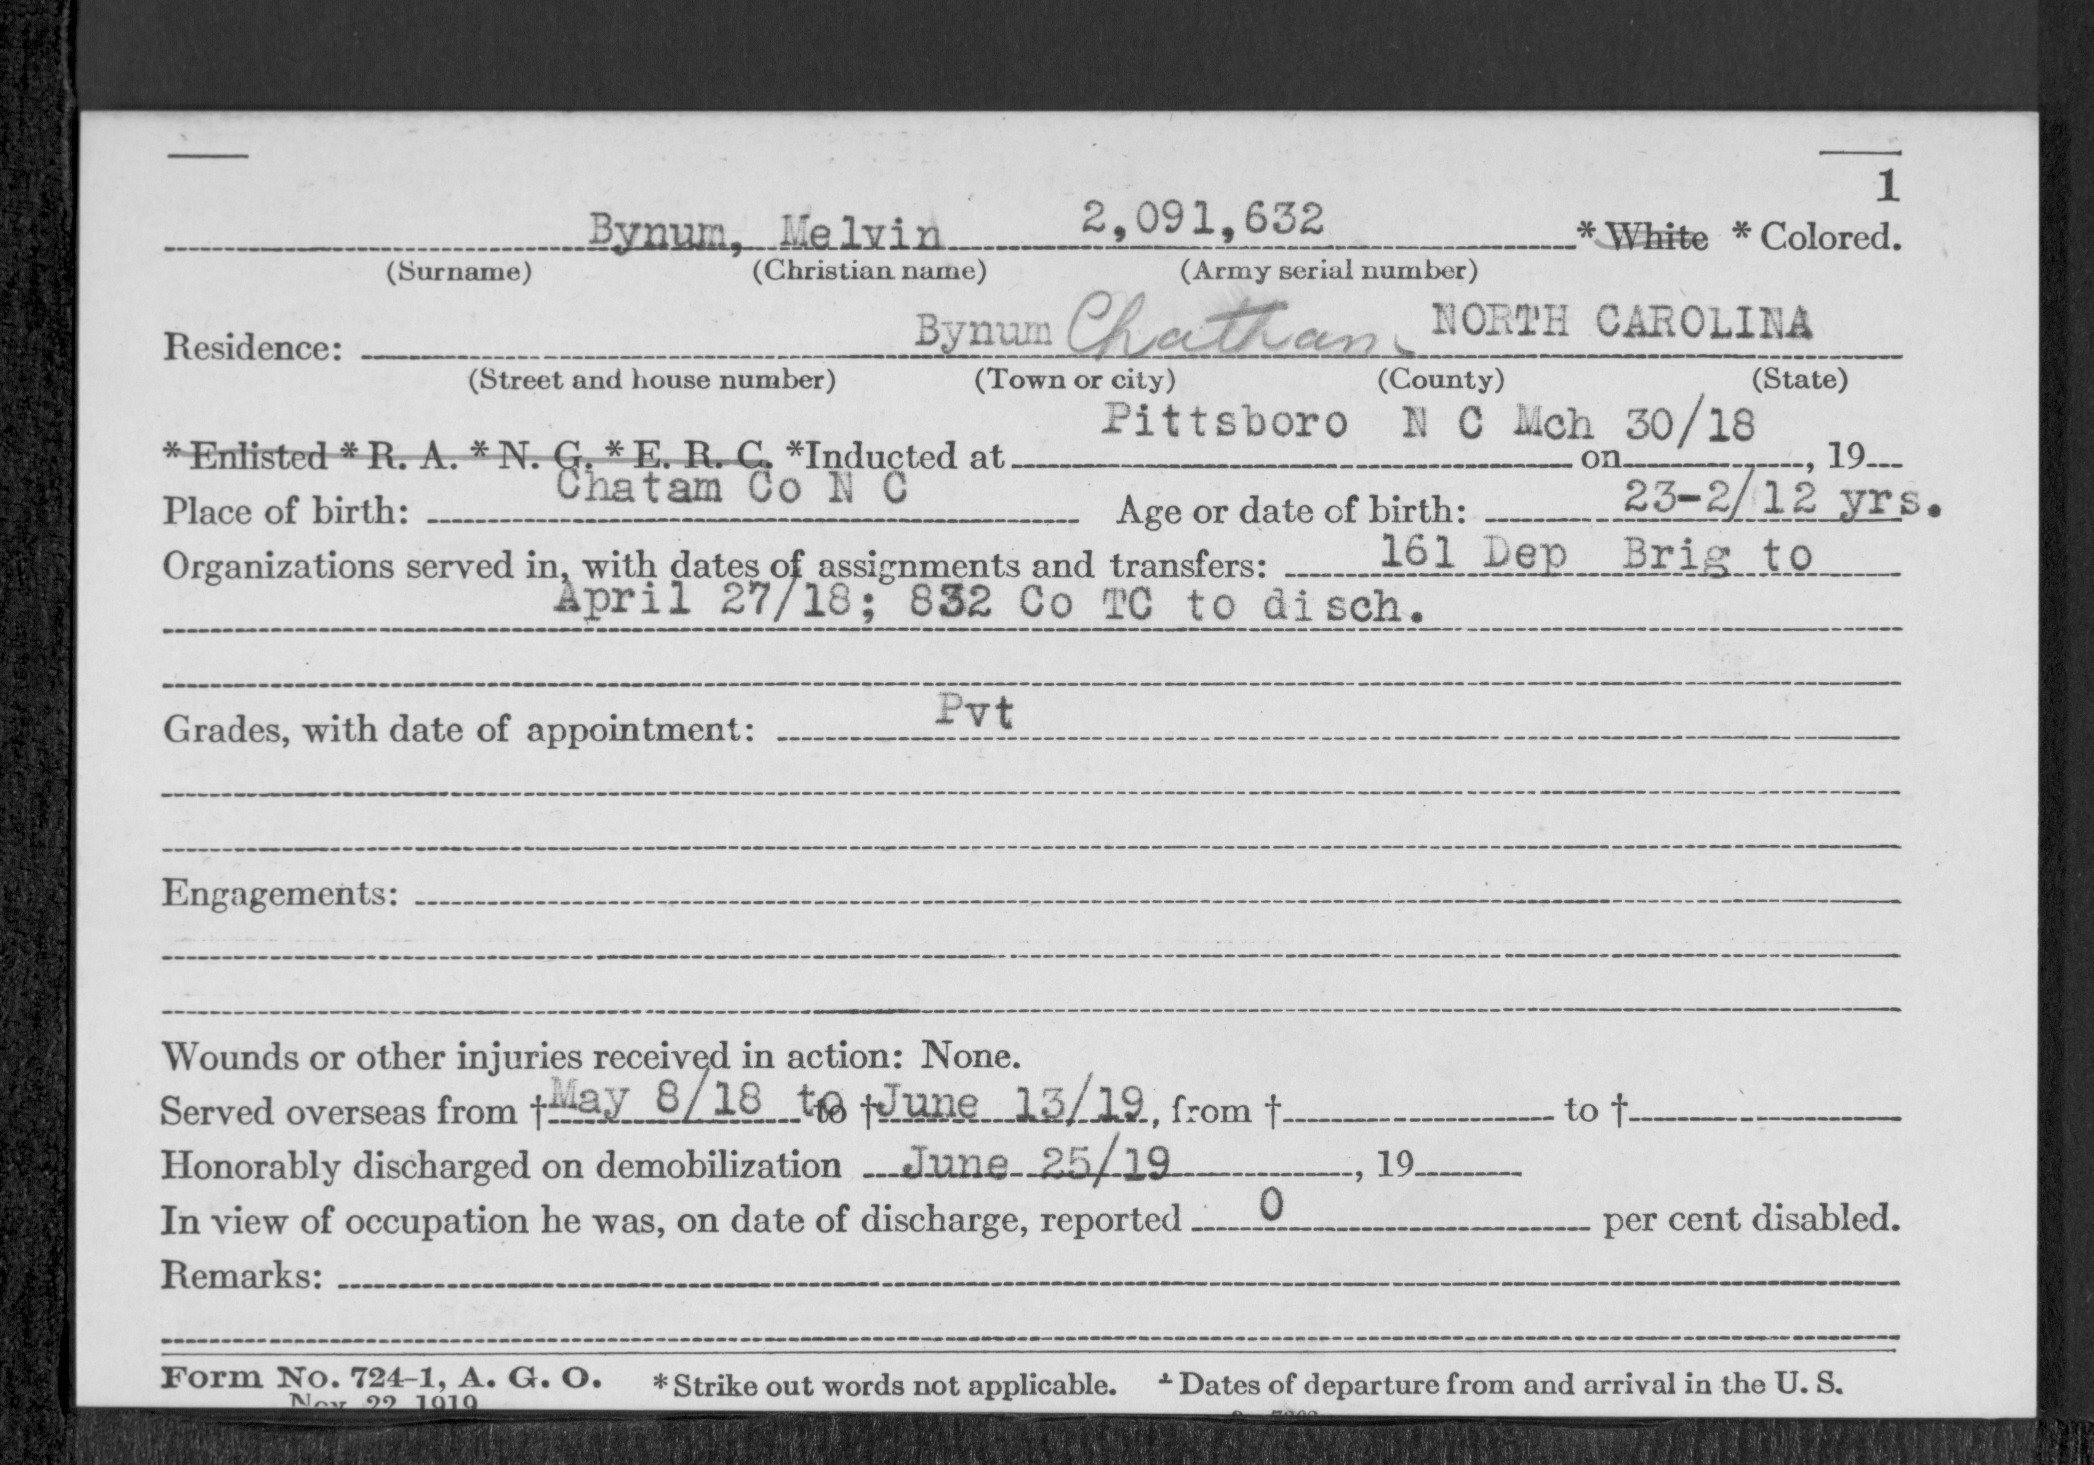 1
Bynum, Melvin 2,091,632 * White * Colored.
(Surname) (Christian name) (Army serial number)
Residence: Bynum Chatham NORTH CAROLINA
(Street and house number) (Town or city) (County) (State)
Pittsboro N C Mch 30/18
* Enlisted * R. A. * N. G. * E. R. C. *Inducted at on , 19
Chatam Co N C 23-2/12 yrs.
Place of birth: Age or date of birth:
Organizations served in, with dates of assignments and transfers: 161 Dep Brig to
April 27/18; 832 Co TC to disch.
Grades, with date of appointment: Pvt
Engagements:
Wounds or other injuries received in action: None.
Served overseas from † May 8/18 to to † June 13/19, from † to †
Honorably discharged on demobilization June 25/19 , 19
In view of occupation he was, on date of discharge, reported 0 per cent disabled.
Remarks:
Form No. 724-1, A. G. O. * Strike out words not applicable. † Dates of departure from and arrival in the U. S.
Nov. 22 1919